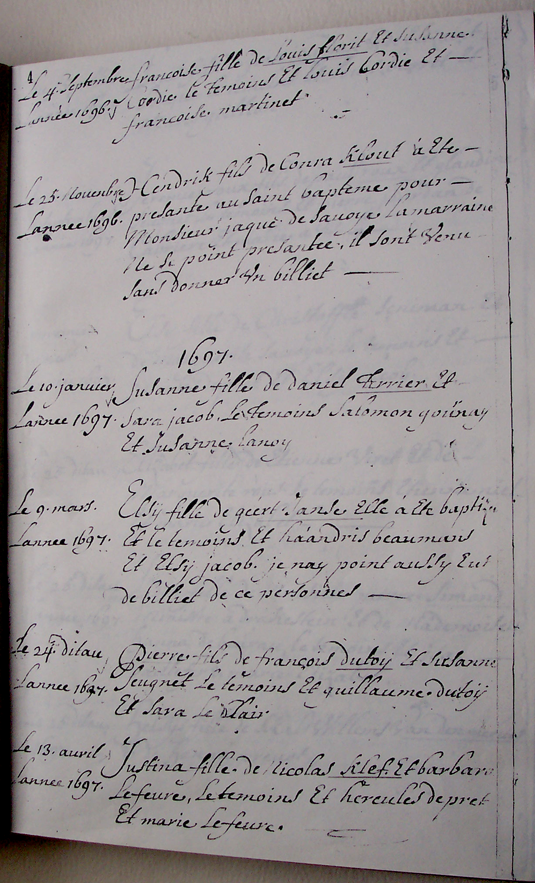 Le 4 Septembre françoise fille de Louis floris Et Susanne
Lannée 1696. Cordie le temoins Et Louis Cordie Et —
françoise martinet
Le 25 Novenbre Cendrik fils de Conra Klout à Ete —
Lannee 1696. presante au Saint bapteme pour —
Monsieur jaque de Savoye La marraine
Ne se point presantee, il sont venu
sans donner un billiet —
1697.
Le 10 janvier Susanne fille de daniel terrier Et
Lannee 1697. Sara jacob. Le temoins Salomon gournay
Et Susanne Lanoy
Le 9. mars. Elsy fille de geert Janse Elle à Ete bapti
Lannee 1697. Et le temoins Et haandris beaumans
Et Elsy jacob. je nay point aussy Eut
de billiet de ce personnes —
Le 24 ditau Pierre fils de françois dutoy Et Susanne
Lannee 1697. Seugnet Le temoins Et guillaume dutoy
Et Sara Le Clair
Le 13. avril Justina fille de Nicolas Klef. Et barbara
Lannee 1697. Lefevre, Le temoins Et hercules de pret
Et marie Lefevre.